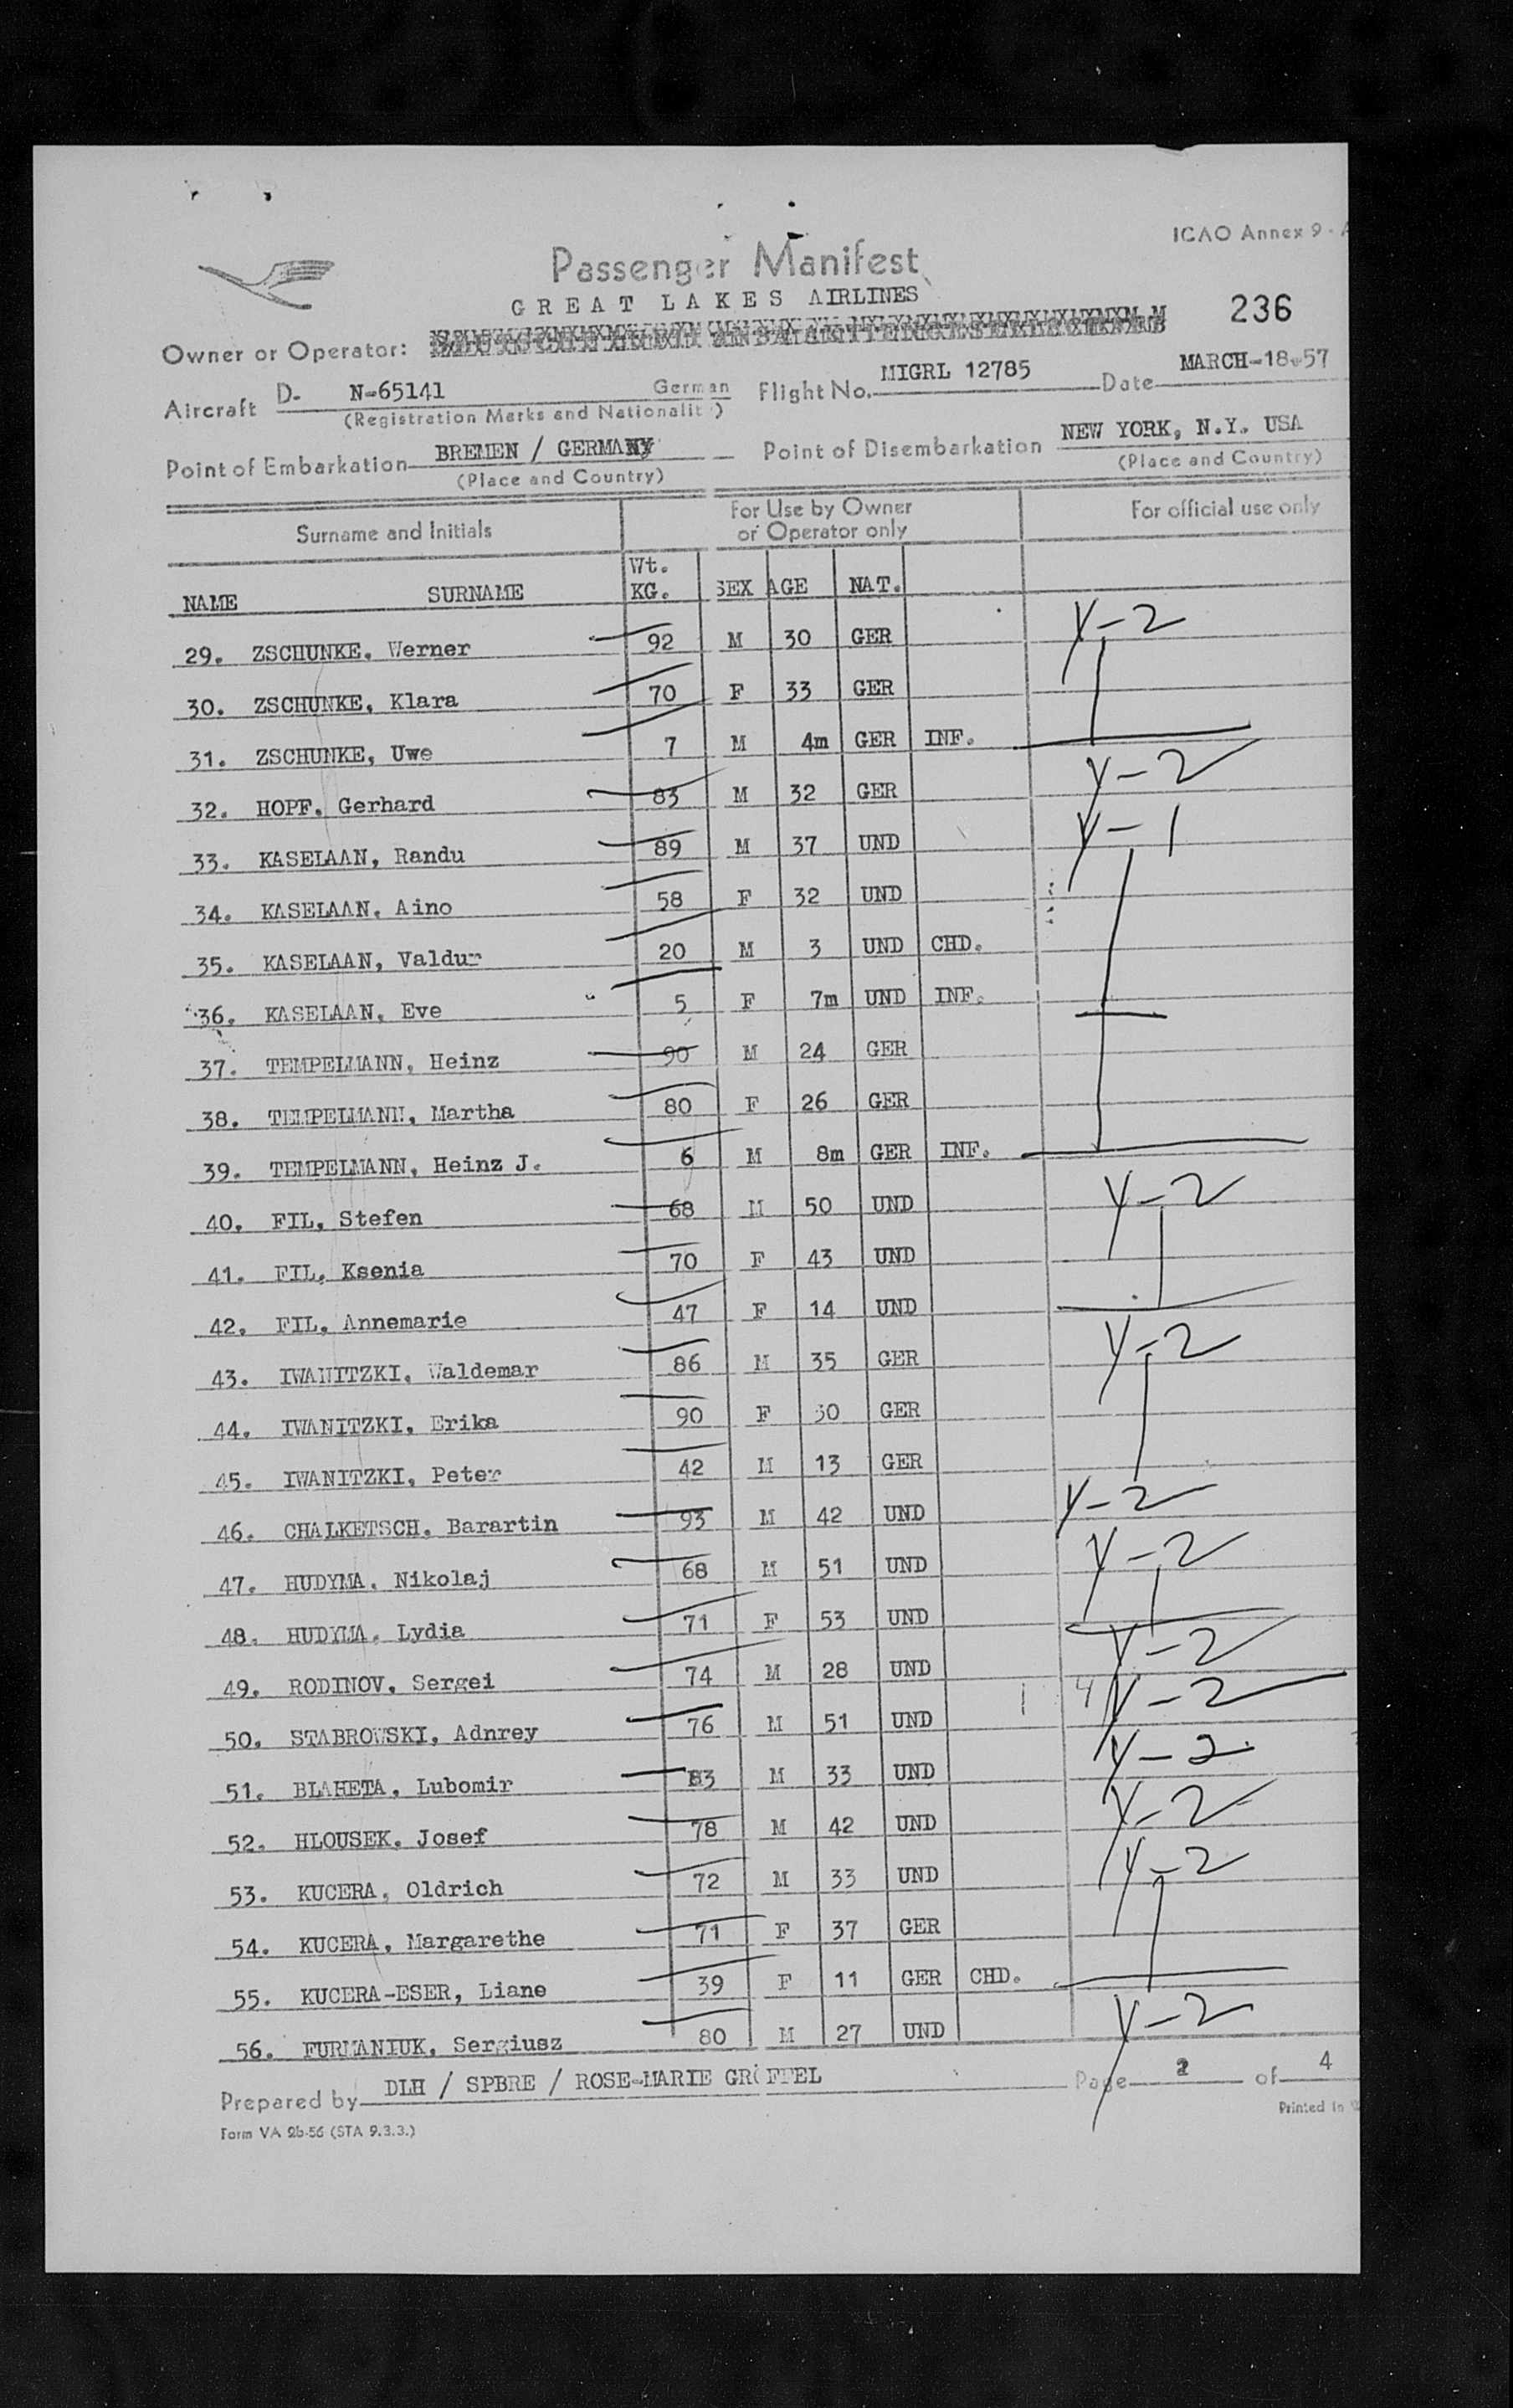 ICAO Annex 9 - A
Passenger Manifest
GREAT LAKES AIRLINES
236
Owner or Operator:
Aircraft D- N-65141 German Flight No. MIGRL 12785 Date MARCH-18-57
(Registration Marks and Nationality)
Point of Embarkation BREMEN / GERMANY Point of Disembarkation NEW YORK, N.Y. USA
(Place and Country) (Place and Country)
Surname and Initials For Use by Owner or Operator only For official use only
NAME SURNAME Wt. KG. SEX AGE NAT.
29. ZSCHUNKE, Werner 92 M 30 GER Y-2
30. ZSCHUNKE, Klara 70 F 33 GER
31. ZSCHUNKE, Uwe 7 M 4m GER INF.
32. HOPF, Gerhard 83 M 32 GER Y-2
33. KASELAAN, Randu 89 M 37 UND Y-1
34. KASELAAN, Aino 58 F 32 UND
35. KASELAAN, Valdur 20 M 3 UND CHD.
36. KASELAAN, Eve 5 F 7m UND INF.
37. TEMPELMANN, Heinz 90 M 24 GER
38. TEMPELMANN, Martha 80 F 26 GER
39. TEMPELMANN, Heinz J. 6 M 8m GER INF.
40. FIL, Stefen 68 M 50 UND Y-2
41. FIL, Ksenia 70 F 43 UND
42. FIL, Annemarie 47 F 14 UND
43. IWANITZKI, Waldemar 86 M 35 GER Y-2
44. IWANITZKI, Erika 90 F 30 GER
45. IWANITZKI, Peter 42 M 13 GER
46. CHALKETSCH, Barartin 93 M 42 UND Y-2
47. HUDYMA, Nikolaj 68 M 51 UND Y-2
48. HUDYMA, Lydia 71 F 53 UND
49. RODINOV, Sergei 74 M 28 UND Y-2
50. STABROWSKI, Adnrey 76 M 51 UND 4 Y-2
51. BLAHETA, Lubomir 83 M 33 UND Y-2
52. HLOUSEK, Josef 78 M 42 UND Y-2
53. KUCERA, Oldrich 72 M 33 UND Y-2
54. KUCERA, Margarethe 71 F 37 GER
55. KUCERA-ESER, Liane 39 F 11 GER CHD.
56. FURMANIUK, Sergiusz 80 M 27 UND Y-2
Prepared by DLH / SPBRE / ROSE-MARIE Page 2 of 4
Form VA 2b-56 (STA 9.3.3.) Printed in